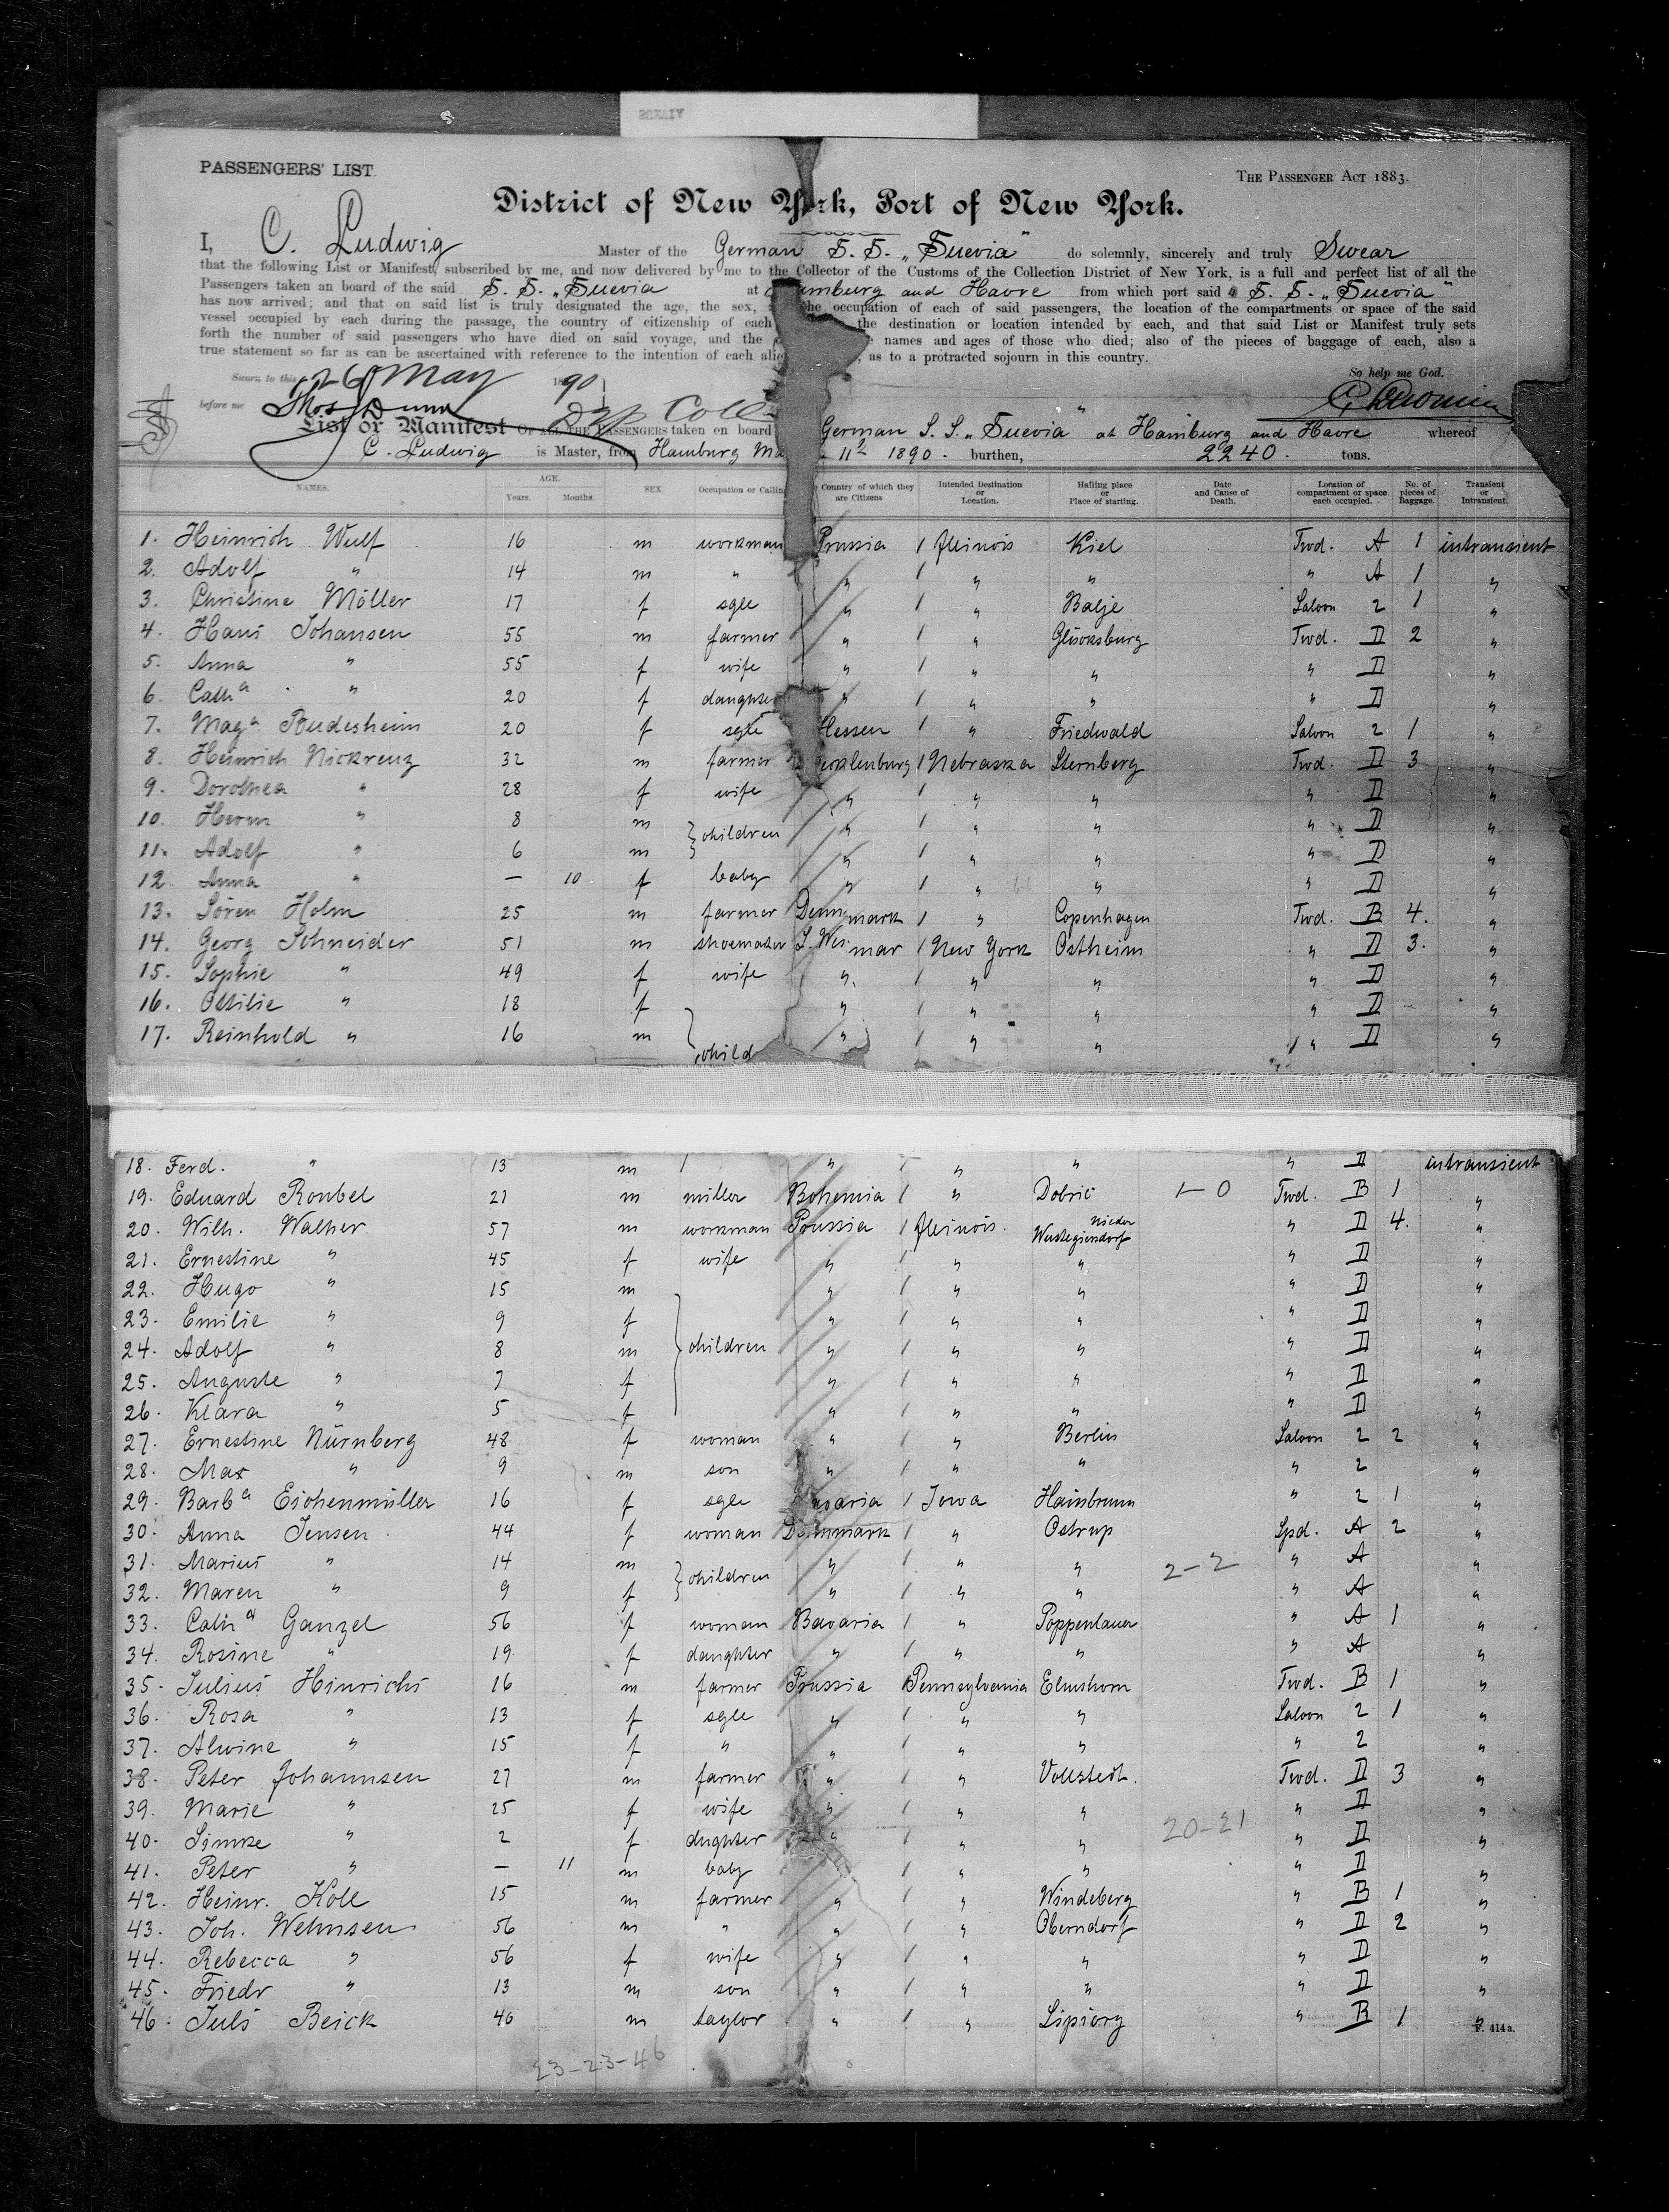 PASSENGERS' LIST.
THE PASSENGER ACT 1883.
District of New York, Port of New York.
I, C. Ludwig Master of the German S. S. „Suevia" do solemnly, sincerely and truly Swear
that the following List or Manifest, subscribed by me, and now delivered by me to the Collector of the Customs of the Collection District of New York, is a full and perfect list of all the
Passengers taken an board of the said S. S. „Suevia at Hamburg and Havre from which port said S. S. „Suevia"
has now arrived; and that on said list is truly designated the age, the sex, the occupation of each of said passengers, the location of the compartments or space of the said
vessel occupied by each during the passage, the country of citizenship of each the destination or location intended by each, and that said List or Manifest truly sets
forth the number of said passengers who have died on said voyage, and the names and ages of those who died; also of the pieces of baggage of each, also a
true statement so far as can be ascertained with reference to the intention of each as to a protracted sojourn in this country.
Sworn to this 26 May 1890
So help me God.
before me Thos J Dunn Dep Coll
List or Manifest OF ALL THE PASSENGERS taken on board German S. S. „Suevia" at Hamburg and Havre whereof
C. Ludwig is Master, from Hamburg Ma 11th 1890. burthen, 2240. tons.
NAMES. AGE. Years. Months. SEX. Occupation or Calling Country of which they are Citizens Intended Destination or Location. Hailing place or Place of starting. Date and Cause of Death. Location of compartment or space each occupied. No. of pieces of Baggage. Transient or Intransient.
1. Heinrich Wulf 16 m workman Prussia 1 Illinois Kiel Twd. A 1 intransient
2. Adolf " 14 m " " 1 " " " A 1 "
3. Christine Möller 17 f sgle " 1 " Balje Saloon 2 1 "
4. Hans Johansen 55 m farmer " 1 " Glücksburg Twd. II 2 "
5. Anna " 55 f wife " 1 " " " II "
6. Catha " 20 f daughter " 1 " " " II "
7. Maga Rudesheim 20 f sgle Hessen 1 " Friedwald Saloon 2 1 "
8. Heinrich Nickrenz 32 m farmer ecklenburg 1 Nebraska Sternberg Twd. II 3 "
9. Dorothea " 28 f wife " 1 " " " II "
10. Herm " 8 m } children " 1 " " " II "
11. Adolf " 6 m " 1 " " " II "
12. Anna " — 10 f baby " 1 " " " II "
13. Sören Holm 25 m farmer Denmark 1 " Copenhagen Twd. B 4. "
14. Georg Schneider 51 m shoemaker S. Weimar 1 New York Ostheim " II 3. "
15. Sophie " 49 f wife " 1 " " " II "
16. Ottilie " 18 f " 1 " " " II "
17. Reinhold " 16 m child " 1 " " " II "
18. Ferd. " 13 m " 1 " " " II intransient
19. Eduard Roubel 21 m miller Bohemia 1 " Dobric 1-0 Twd. B 1 "
20. Wilh. Walher 57 m workman Prussia 1 Illinois. Nieder Wustegiersdorf " II 4. "
21. Ernestine " 45 f wife " 1 " " " II "
22. Hugo " 15 m " 1 " " " II "
23. Emilie " 9 f " 1 " " " II "
24. Adolf " 8 m children " 1 " " " II "
25. Auguste " 7 f " 1 " " " II "
26. Klara " 5 f " 1 " " " II "
27. Ernestine Nürnberg 48 f woman " 1 " Berlin Saloon 2 2 "
28. Max " 9 m son " 1 " " " 2 "
29. Barba Eichenmüller 16 f sgle varia 1 Iowa Hainbrunn " 2 1 "
30. Anna Jensen 44 f woman Denmark 1 " Ostrup Spd. A 2 "
31. Marius " 14 m } children " 1 " " 2-2 " A "
32. Maren " 9 f " 1 " " " A "
33. Catha Ganzel 56 f woman Bavaria 1 " Poppenlauer " A 1 "
34. Rosine " 19 f daughter " 1 " " " A "
35. Julius Hinrichs 16 m farmer Prussia 1 Pennsylvania Elmshorn Twd. B 1 "
36. Rosa " 13 f sgle " 1 " " Saloon 2 1 "
37. Alwine " 15 f " " 1 " " " 2 "
38. Peter Johannsen 27 m farmer " 1 " Vollstedt. Twd. II 3 "
39. Marie " 25 f wife " 1 " " " II "
40. Simke " 2 f dughter " 1 " " 20-21 " II "
41. Peter " — 11 m baby " 1 " " " II "
42. Heinr. Koll 15 m farmer " 1 " Windeberg " B 1 "
43. Joh. Wehnsen 56 m " " 1 " Oberndorf " II 2 "
44. Rebecca " 56 f wife " 1 " " " II "
45. Friedr " 13 m son " 1 " " " II "
46. Juls Beick 40 m taylor " 1 " Lipiory " B 1 "
F. 414a.
23-23-46